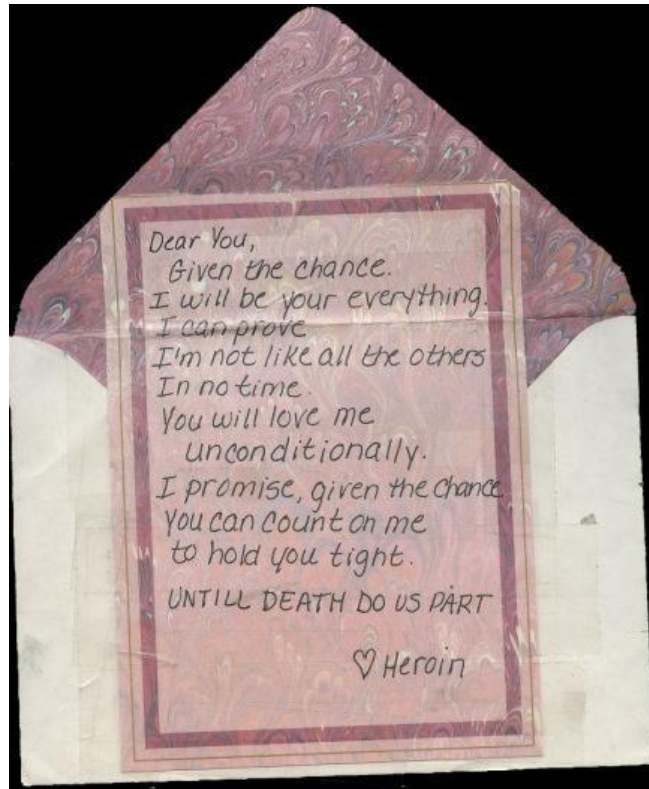 Dear You,
Given the chance.
I will be your everything.
I can prove
I'm not like all the others
In no time.
You will love me
unconditionally.
I promise, given the chance
You can count on me
to hold you tight.
UNTILL DEATH DO US PART
♡ Heroin